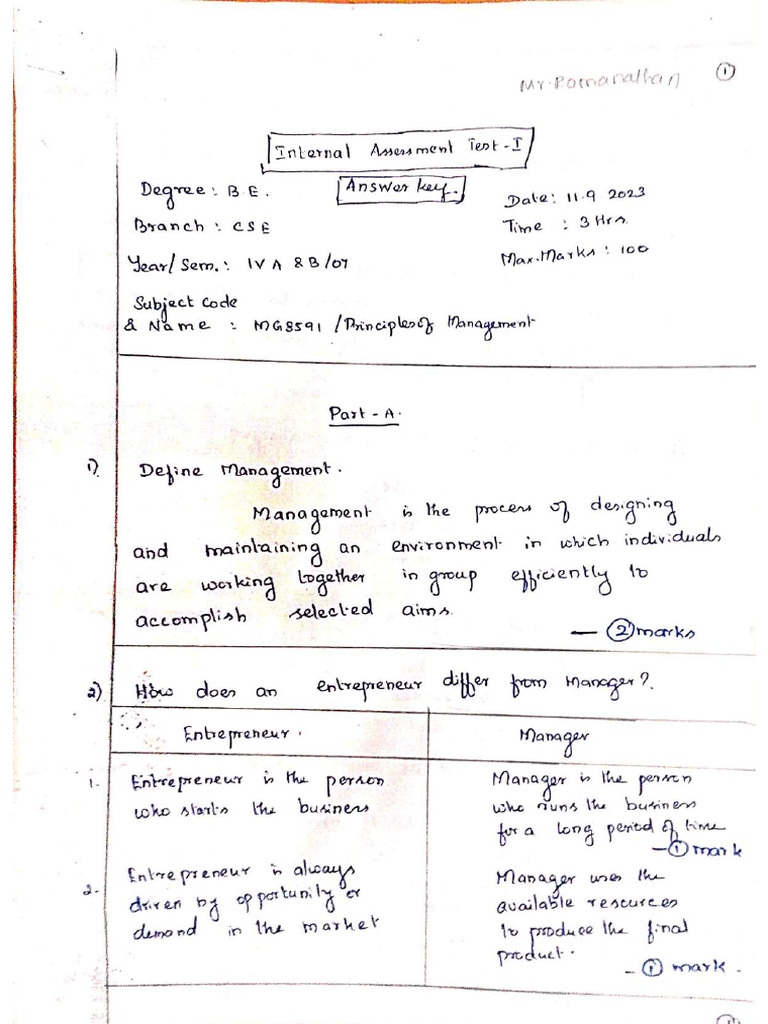 Mr. Ramanathan ①
Internal Assessment Test - I
Answer key.
Degree : B.E.
Date : 11.9 2023
Branch : CSE
Time : 3 Hrs.
Year/ Sem. : IV A & B/07
Max. Marks : 100
Subject code
& Name : MG8591 / Principles of Management
Part - A.
1) Define Management.
Management is the process of designing
and maintaining an environment in which individuals
are working together in group efficiently to
accomplish selected aims.
— ② marks
2) How does an entrepreneur differ from Manager?
Entrepreneur. Manager
1. Entrepreneur is the person
who starts the business
Manager is the person
who runs the business
for a long period of time
— ① mark
2. Entrepreneur is always
driven by opportunity or
demand in the market
Manager uses the
available resources
to produce the final
product.
- ① mark.